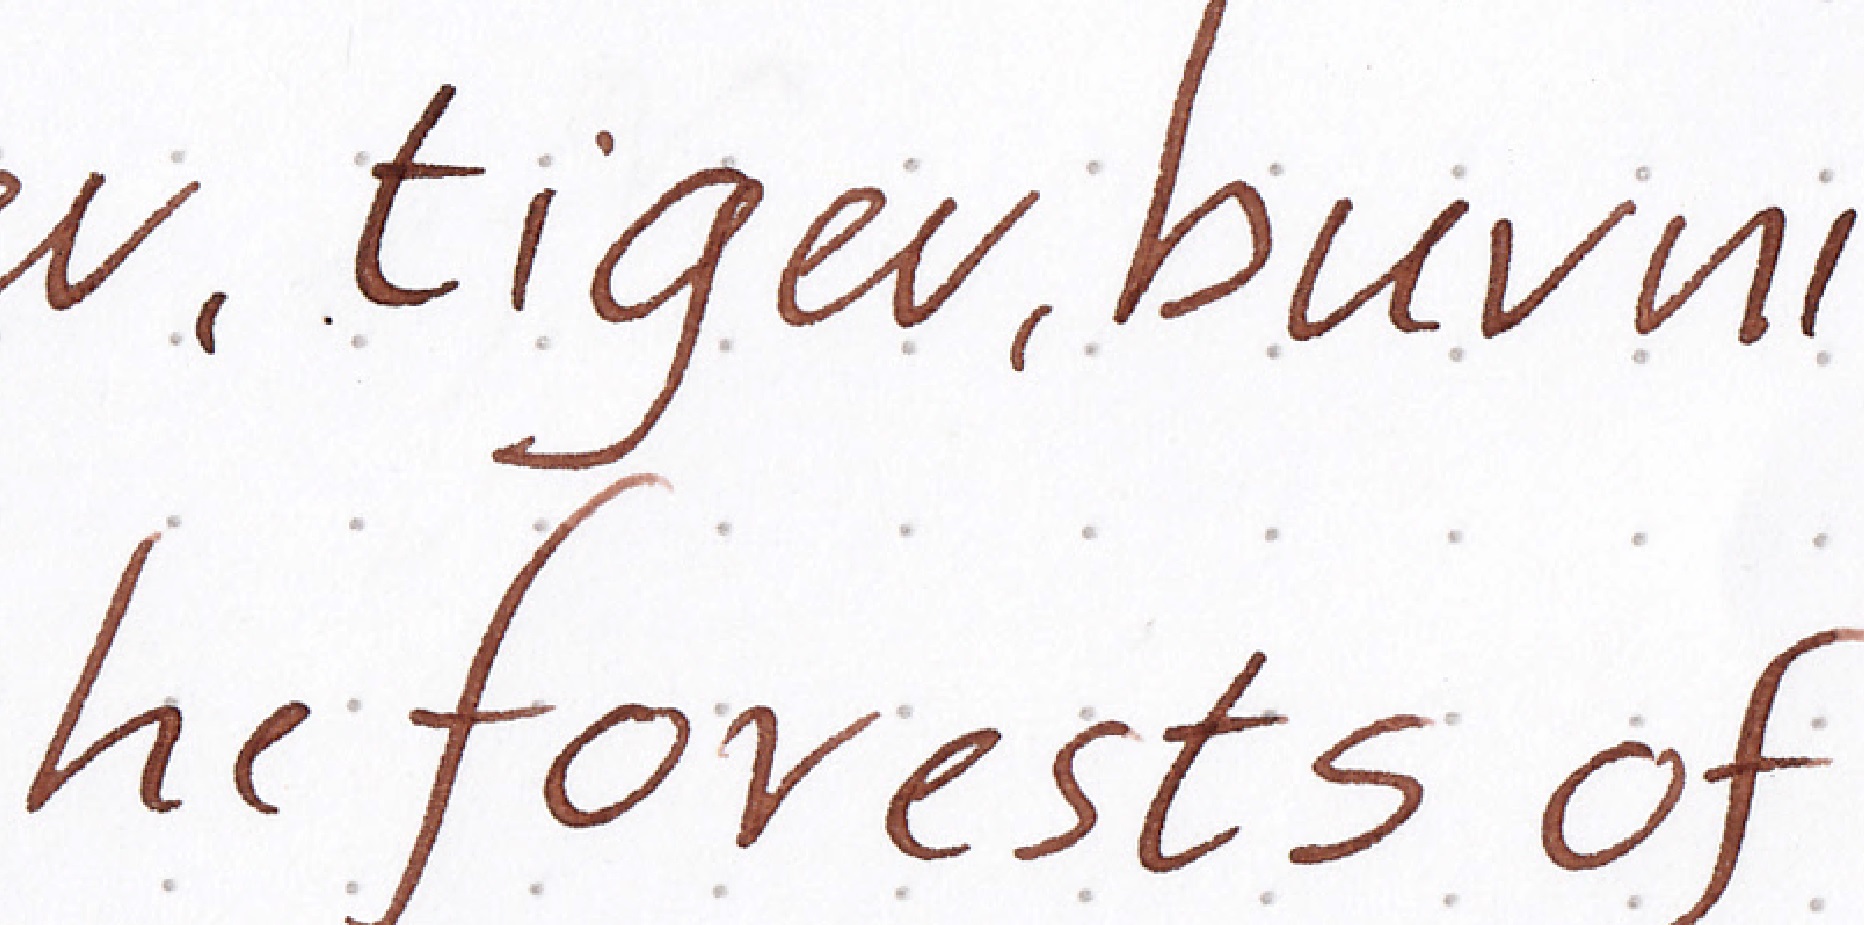 er, tiger, burni
he forests of